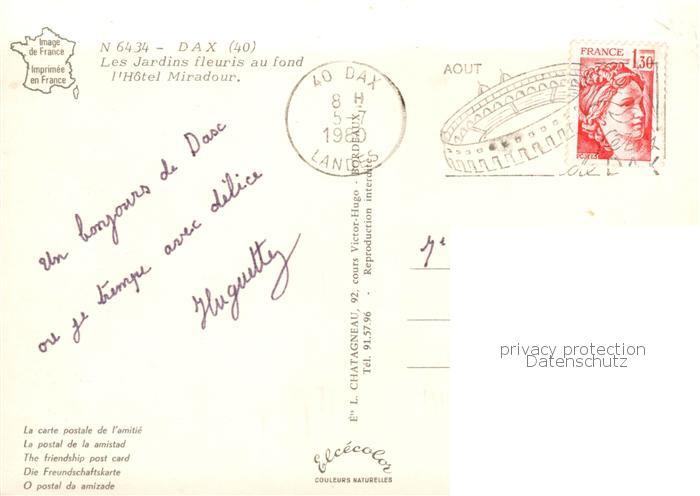 Image
de France
Imprimée
en France
N 6434 - DAX (40)
Les Jardins fleuris au fond
l'Hôtel Miradour.
40 DAX
8 H
5-7
1980
LANDES
AOUT
FRANCE
1,30
DAX
Un bonjours de Dasc
ou je trempe avec délice
Huguette
Éts L. CHATAGNEAU, 92, cours Victor-Hugo - BORDEAUX
Tél. 91.57.96 - Reproduction interdite
privacy protection
Datenschutz
La carte postale de l'amitié
La postal de la amistad
The friendship post card
Die Freundschaftskarte
O postal da amizade
Elcécolor
COULEURS NATURELLES